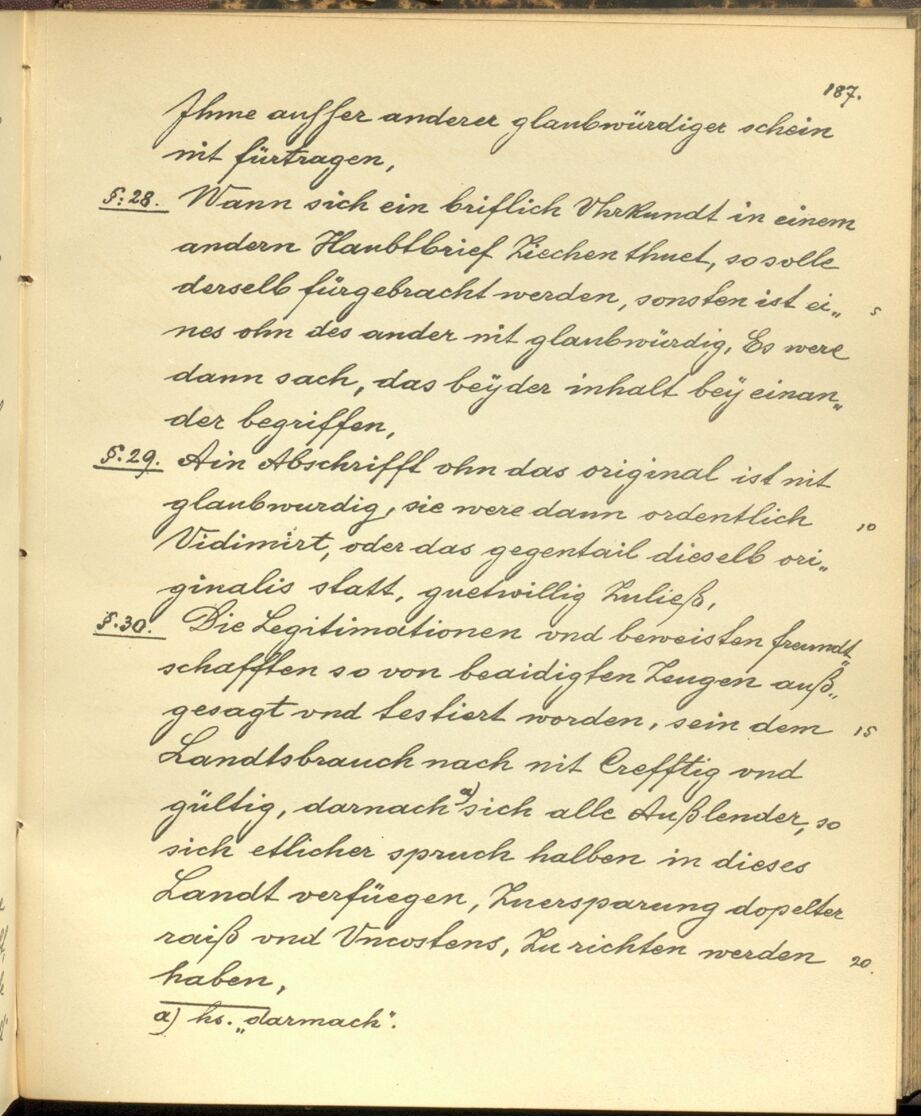 187.
Ihme ausser anderer glaubwürdiger schein
nit fürtragen,
§: 28. Wann sich ein briflich Vhrkundt in einem
andern Haubtbrief Ziechen thuet, so solle
derselb fürgebracht werden, sonsten ist ei„ 5
nes ohn des ander nit glaubwürdig, Es were
dann sach, das beÿder inhalt beÿ einan„
der begriffen,
§. 29. Ain Abschrifft ohn das original ist nit
glaubwurdig, sie were dann ordentlich 10
Vidimirt, oder das gegentail dieselb ori„
ginalis statt, guetwillig Zuließ,
§. 30. Die Legitimationen vnd beweisten freundt„
schafften so von beaidigten Zeugen auß„
gesagt vnd testiert worden, sein dem 15
Landtsbrauch nach nit Crefftig vnd
gültig, darnach a) sich alle Außlender, so
sich etlicher spruch halben in dieses
Landt verfüegen, Zuersparung dopelter
raiß vnd Vncostens, Zu richten werden 20.
haben,
a) hs. „darmach“.